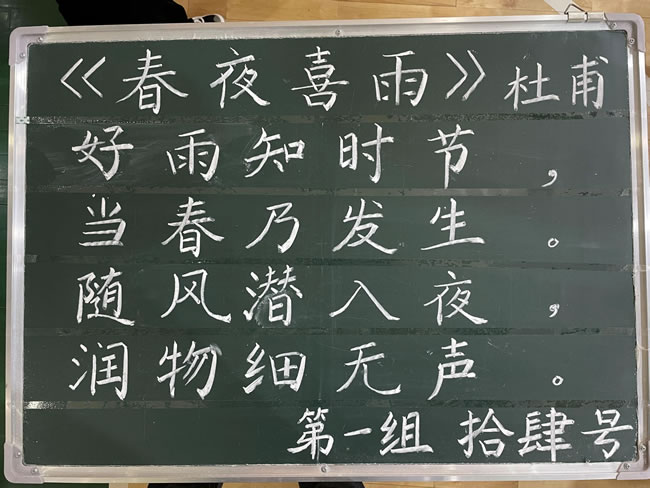 《春夜喜雨》杜甫
好雨知时节，
当春乃发生。
随风潜入夜，
润物细无声。
第一组 拾肆号